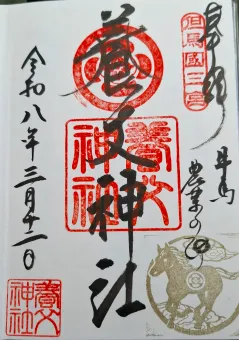 奉拝
但馬國三宮
牛馬
農業の神
養父神社
養父神社
令和八年三月十二日
養父神社